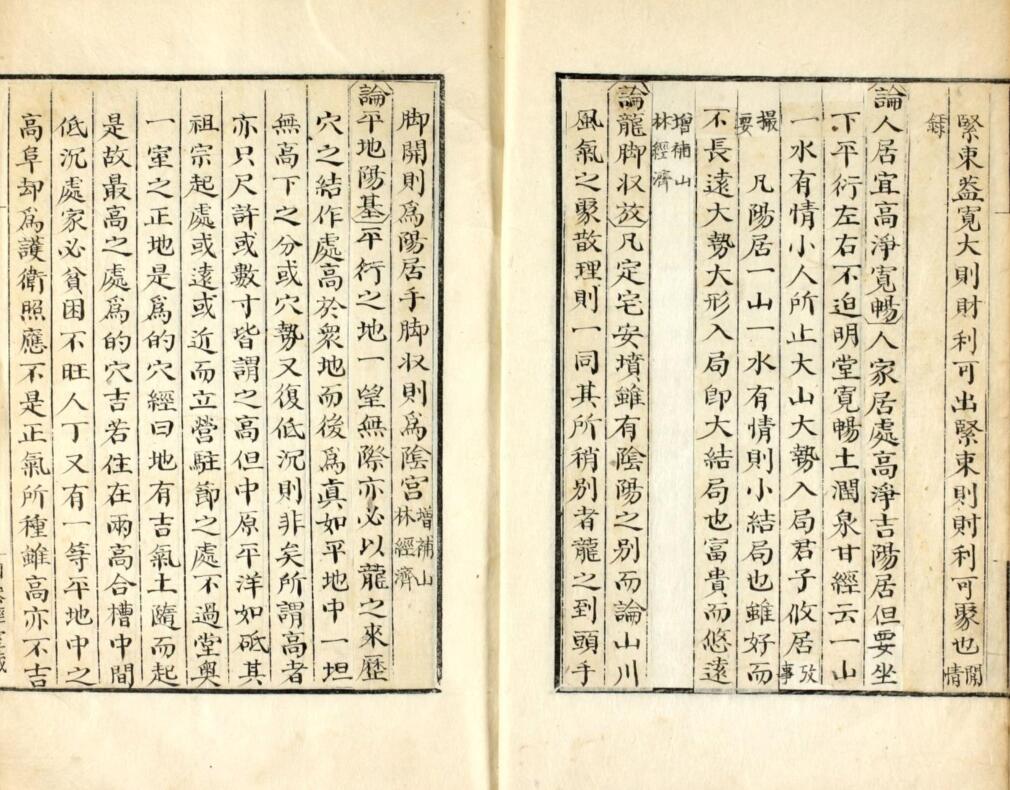 緊束葢寛大則財利可出緊束則財利可聚也閒情
録
論人居宜高淨寛暢人家居處高淨吉陽居但要坐
下平衍左右不迫明堂寛暢土潤泉甘經云一山
一水有情小人所止大山大勢入局君子攸居攷事
撮要 凡陽居一山一水有情則小結局也雖好而
不長遠大勢大形入局卽大結局也富貴而悠遠
增補山林經濟
論龍脚収放凡定宅安墳雖有陰陽之别而論山川
風氣之聚散理則一同其所稍别者龍之到頭手
脚開則爲陽居手脚収則爲陰宮增補山林經濟
論平地陽基平衍之地一望無際亦必以龍之來歷
穴之結作處高於衆地而後爲眞如平地中一坦
無高下之分或穴勢又復低沉則非矣所謂高者
亦只尺許或數寸皆謂之高但中原平洋如砥其
祖宗起處或遠或近而立營駐節之處不過堂奥
一室之正地是爲的穴經曰地有吉氣土隨而起
是故最高之處爲的穴吉若住在兩高合槽中間
低沉處家必貧困不旺人丁又有一等平地中之
高阜却爲護衛照應不是正氣所種雖高亦不吉